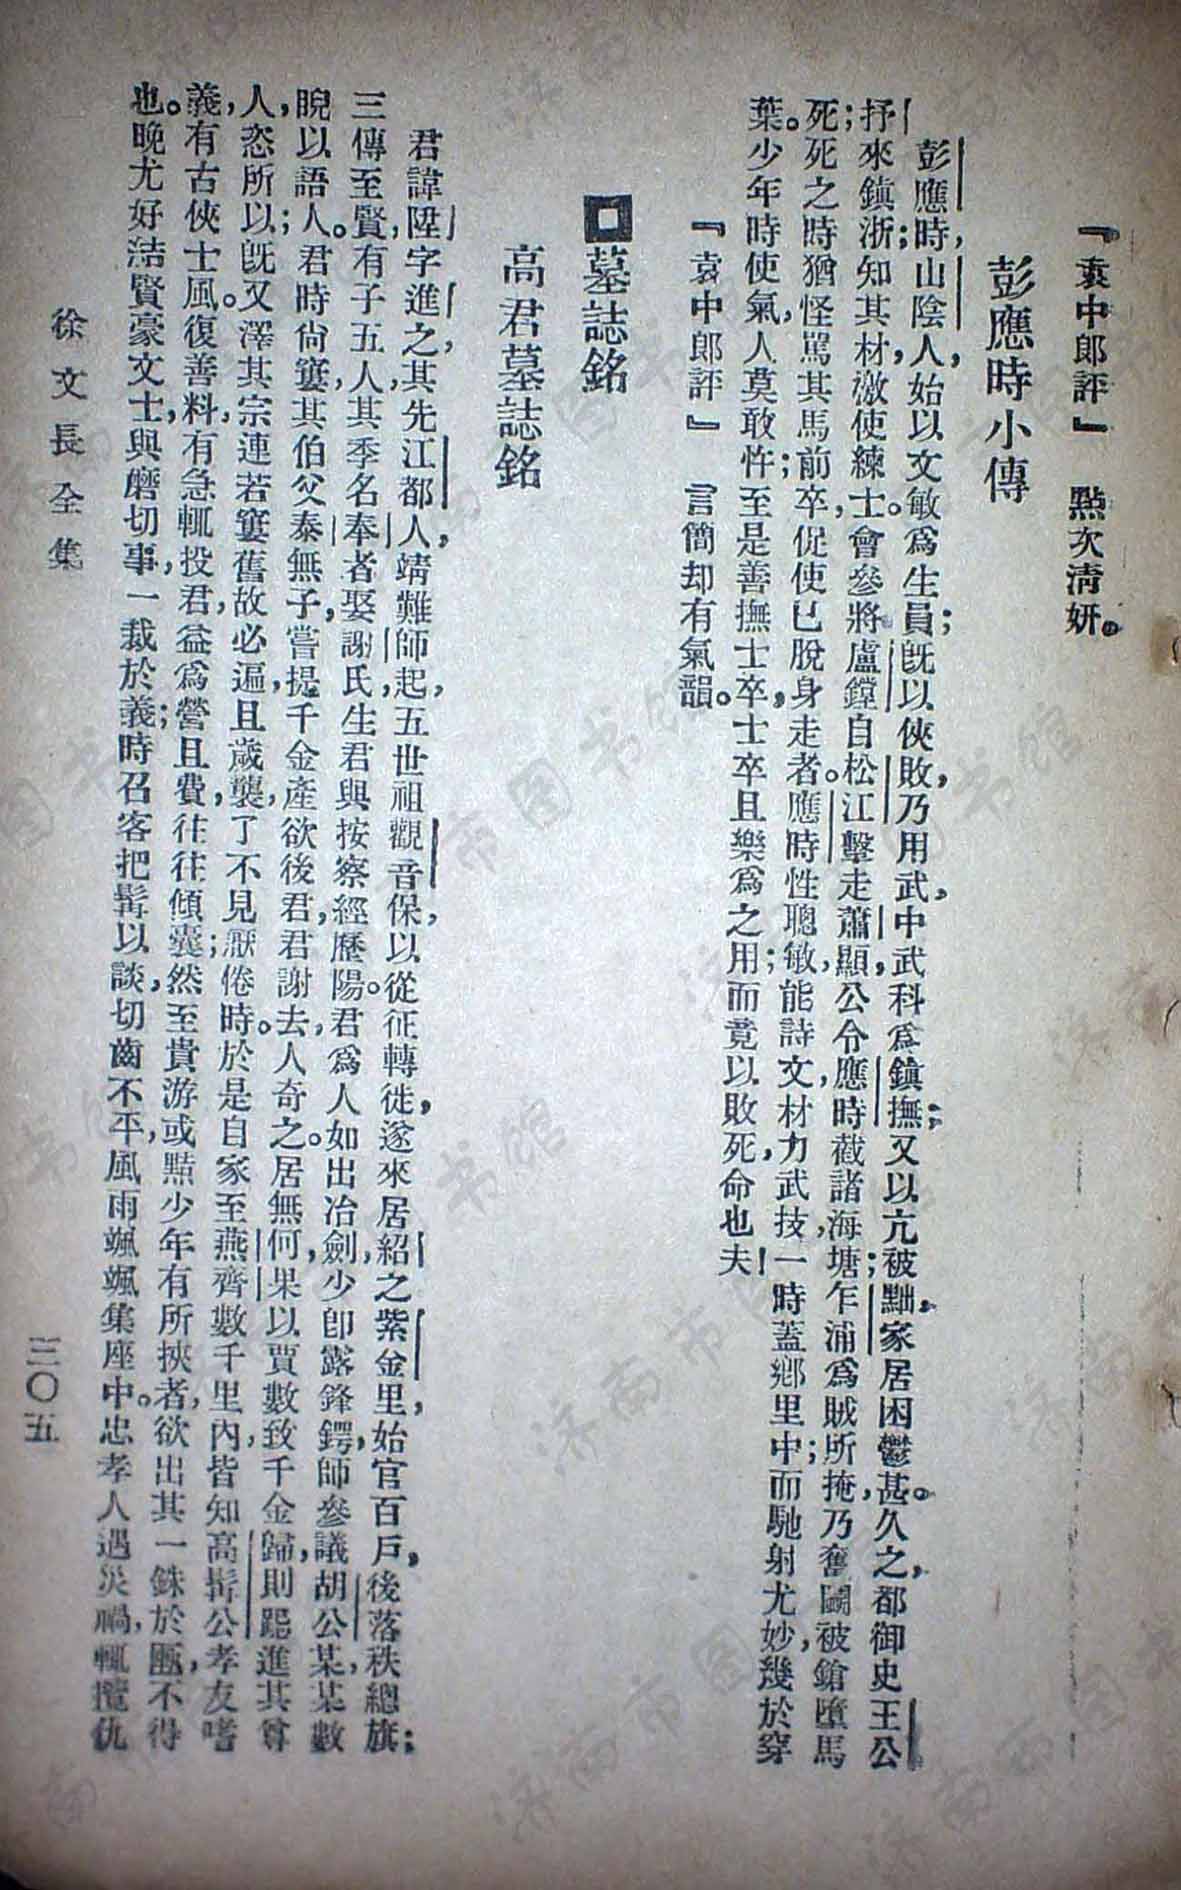 『袁中郎評』　點次淸妍。
彭應時小傳
彭應時，山陰人，始以文敏爲生員；旣以俠敗，乃用武，中武科爲鎭撫；又以亢被黜，家居困鬱甚。久之，都御史王公
抒來鎭浙，知其材，激使練士。會參將盧鏜自松江擊走蕭顯，公令應時截諸海塘；乍浦爲賊所掩，乃奮鬭被鎗墮馬
死；死之時猶怪罵其馬前卒，促使已脫身走者。應時性聰敏，能詩文，材力武技，一時蓋鄕里中；而馳射尤妙，幾於穿
葉。少年時使氣，人莫敢忤；至是善撫士卒，士卒且樂爲之用；而竟以敗死，命也夫！
『袁中郎評』　言簡却有氣韻。
墓誌銘
高君墓誌銘
君諱陞，字進之，其先江都人，靖難師起，五世祖觀音保，以從征轉徙，遂來居紹之紫金里，始官百戶，後落秩總旗；
三傳至賢，有子五人，其季名奉者，娶謝氏，生君與按察經歷陽。君爲人如出冶劍，少卽露鋒鍔，師參議胡公某，某數
睨以語人。君時尙窶，其伯父泰無子，嘗提千金產欲後君，君謝去，人奇之。居無何，果以賈數致千金，歸則跽進其尊
人，恣所以；旣又澤其宗連若窶舊故必遍，且歲襲，了不見厭倦時。於是自家至燕齊數千里內，皆知高髯公孝友嗜
義，有古俠士風。復善料，有急輒投君，君益爲營且費，往往傾囊；然至貴游或黠少年有所挾者，欲出其一銖於匭，不得
也。晚尤好結賢豪文士，與磨切事，一裁於義；時召客把髯以談，切齒不平，風雨颯颯集座中。忠孝人遇災禍，輒攬仇
徐文長全集
三〇五